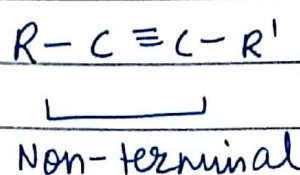 R - C ≡ C - R'
Non-terminal